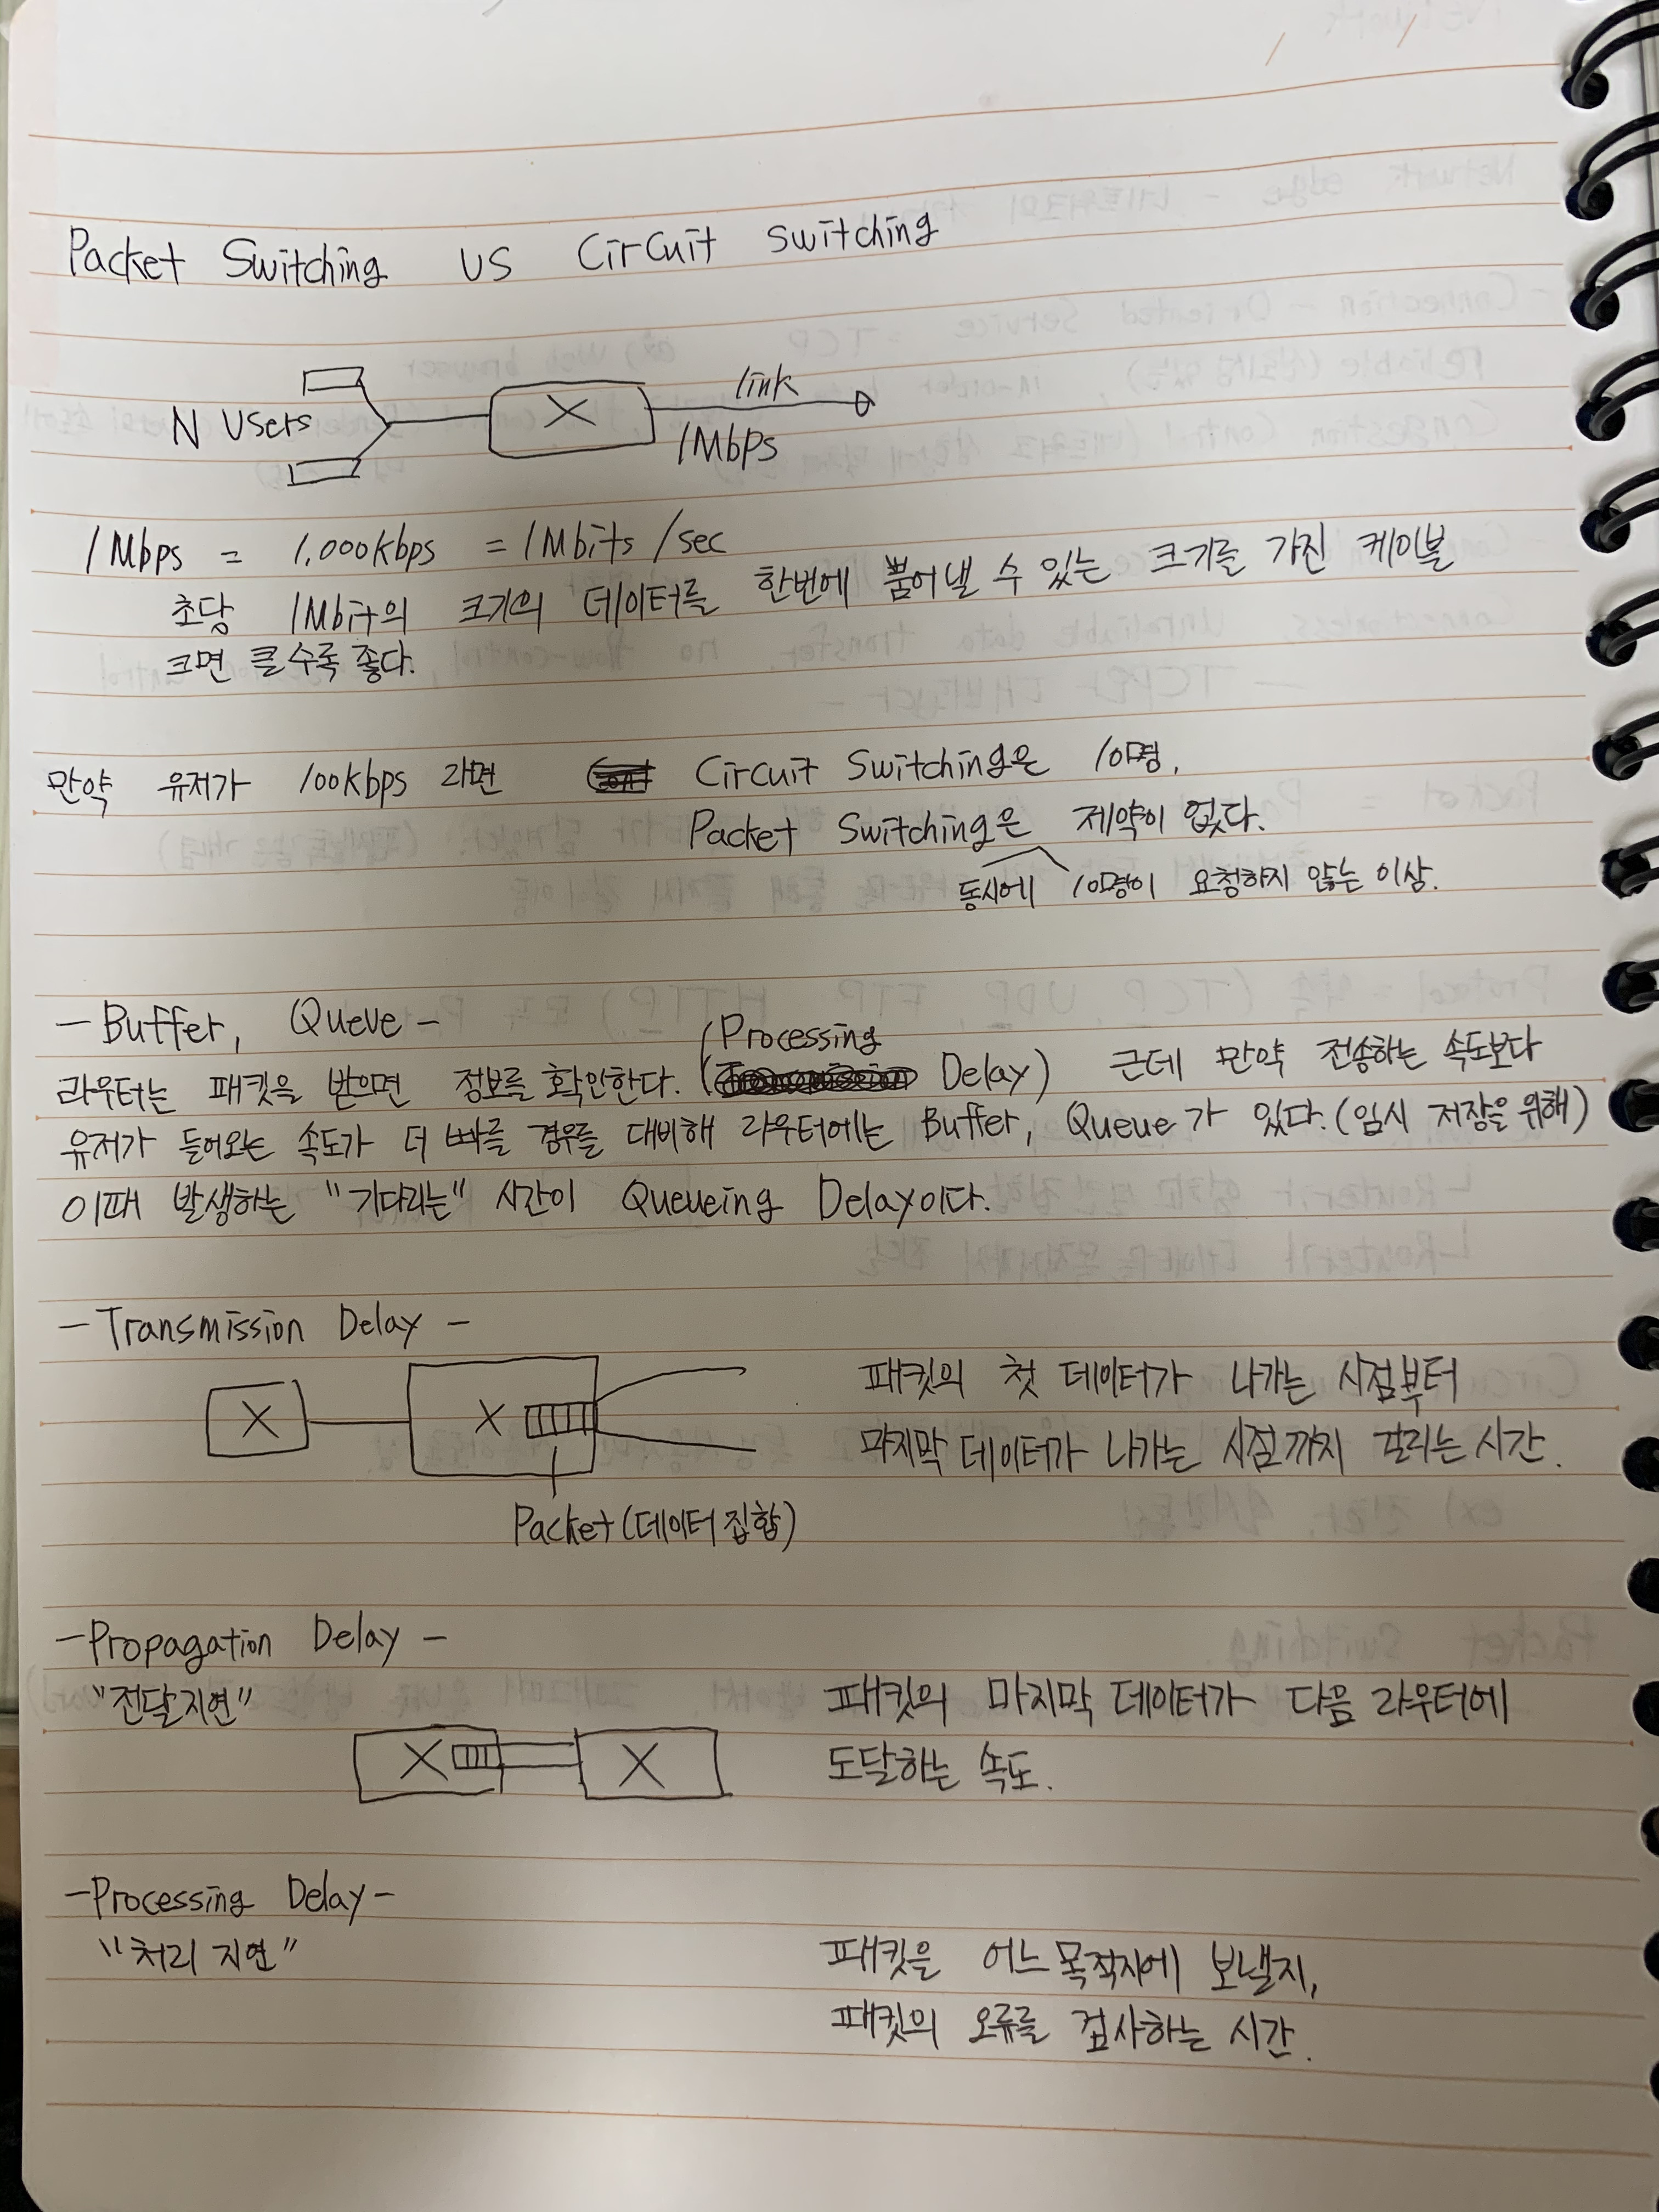 Packet Switching vs Circuit switching
N users
X
link
1Mbps
1Mbps = 1,000kbps = 1Mbits/sec
초당 1Mbit의 크기의 데이터를 한번에 뿜어낼 수 있는 크기를 가진 케이블
크면 클수록 좋다.
만약 유저가 100kbps 라면 Circuit Switching은 10명,
Packet Switching은 제약이 없다.
동시에 10명이 요청하지 않는 이상.
- Buffer, Queue -
라우터는 패킷을 받으면 정보를 확인한다. (Processing Delay) 근데 만약 전송하는 속도보다
유저가 들어오는 속도가 더 빠를 경우를 대비해 라우터에는 Buffer, Queue가 있다. (임시 저장을 위해)
이때 발생하는 "기다리는" 시간이 Queueing Delay이다.
- Transmission Delay -
X X
패킷의 첫 데이터가 나가는 시점부터
마지막 데이터가 나가는 시점까지 걸리는 시간.
Packet (데이터 집합)
- Propagation Delay -
"전달지연"
X X
패킷의 마지막 데이터가 다음 라우터에
도달하는 속도.
- Processing Delay -
"처리 지연"
패킷을 어느 목적지에 보낼지,
패킷의 오류를 검사하는 시간.